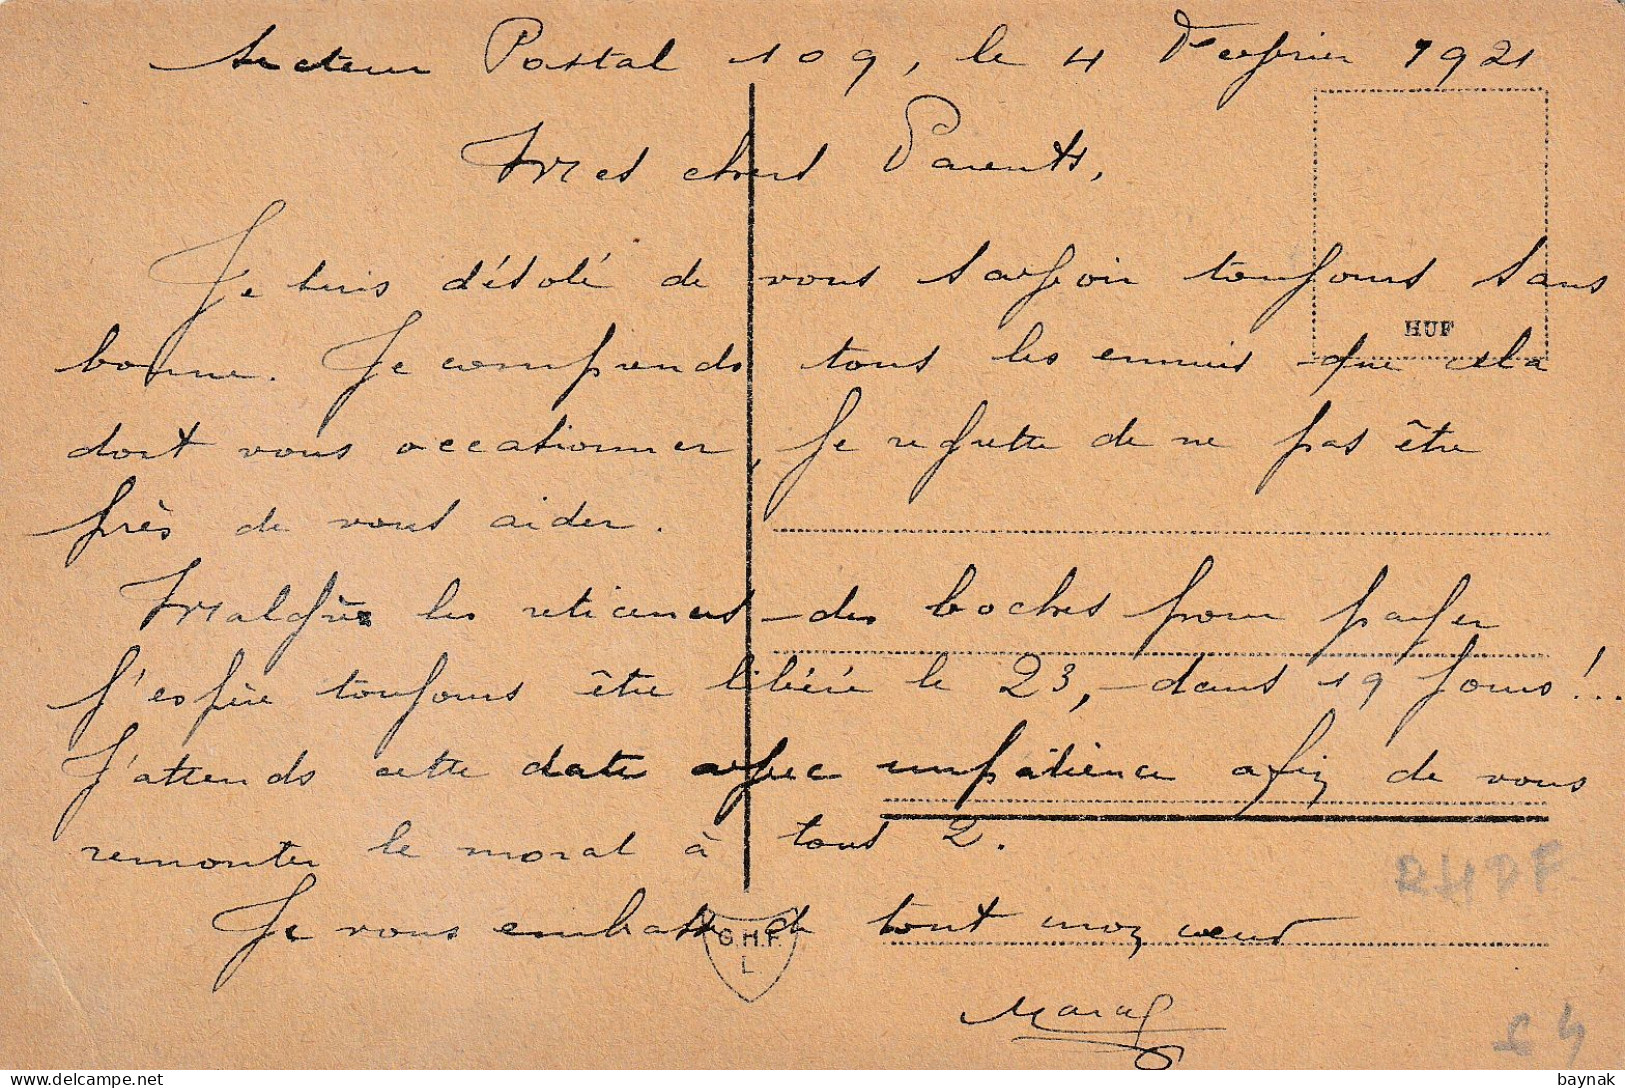 Secteur Postal 109, le 4 Fevrier 1921
Mes chers Parents,
Je suis désolé de vous savoir toujours sans
bonne. Je comprends tous les ennuis que cela
HUF
doit vous occasionner, je regrette de ne pas être
près de vous aider.
Malgré les reticences des boches pour payer
j'espère toujours être libéré le 23, dans 19 jours!...
J'attends cette date avec impatience afin de vous
remonter le moral à tous 2.
Je vous embrasse de tout mon cœur
G.H.F.
L.
RHDF
€ 4
baynak